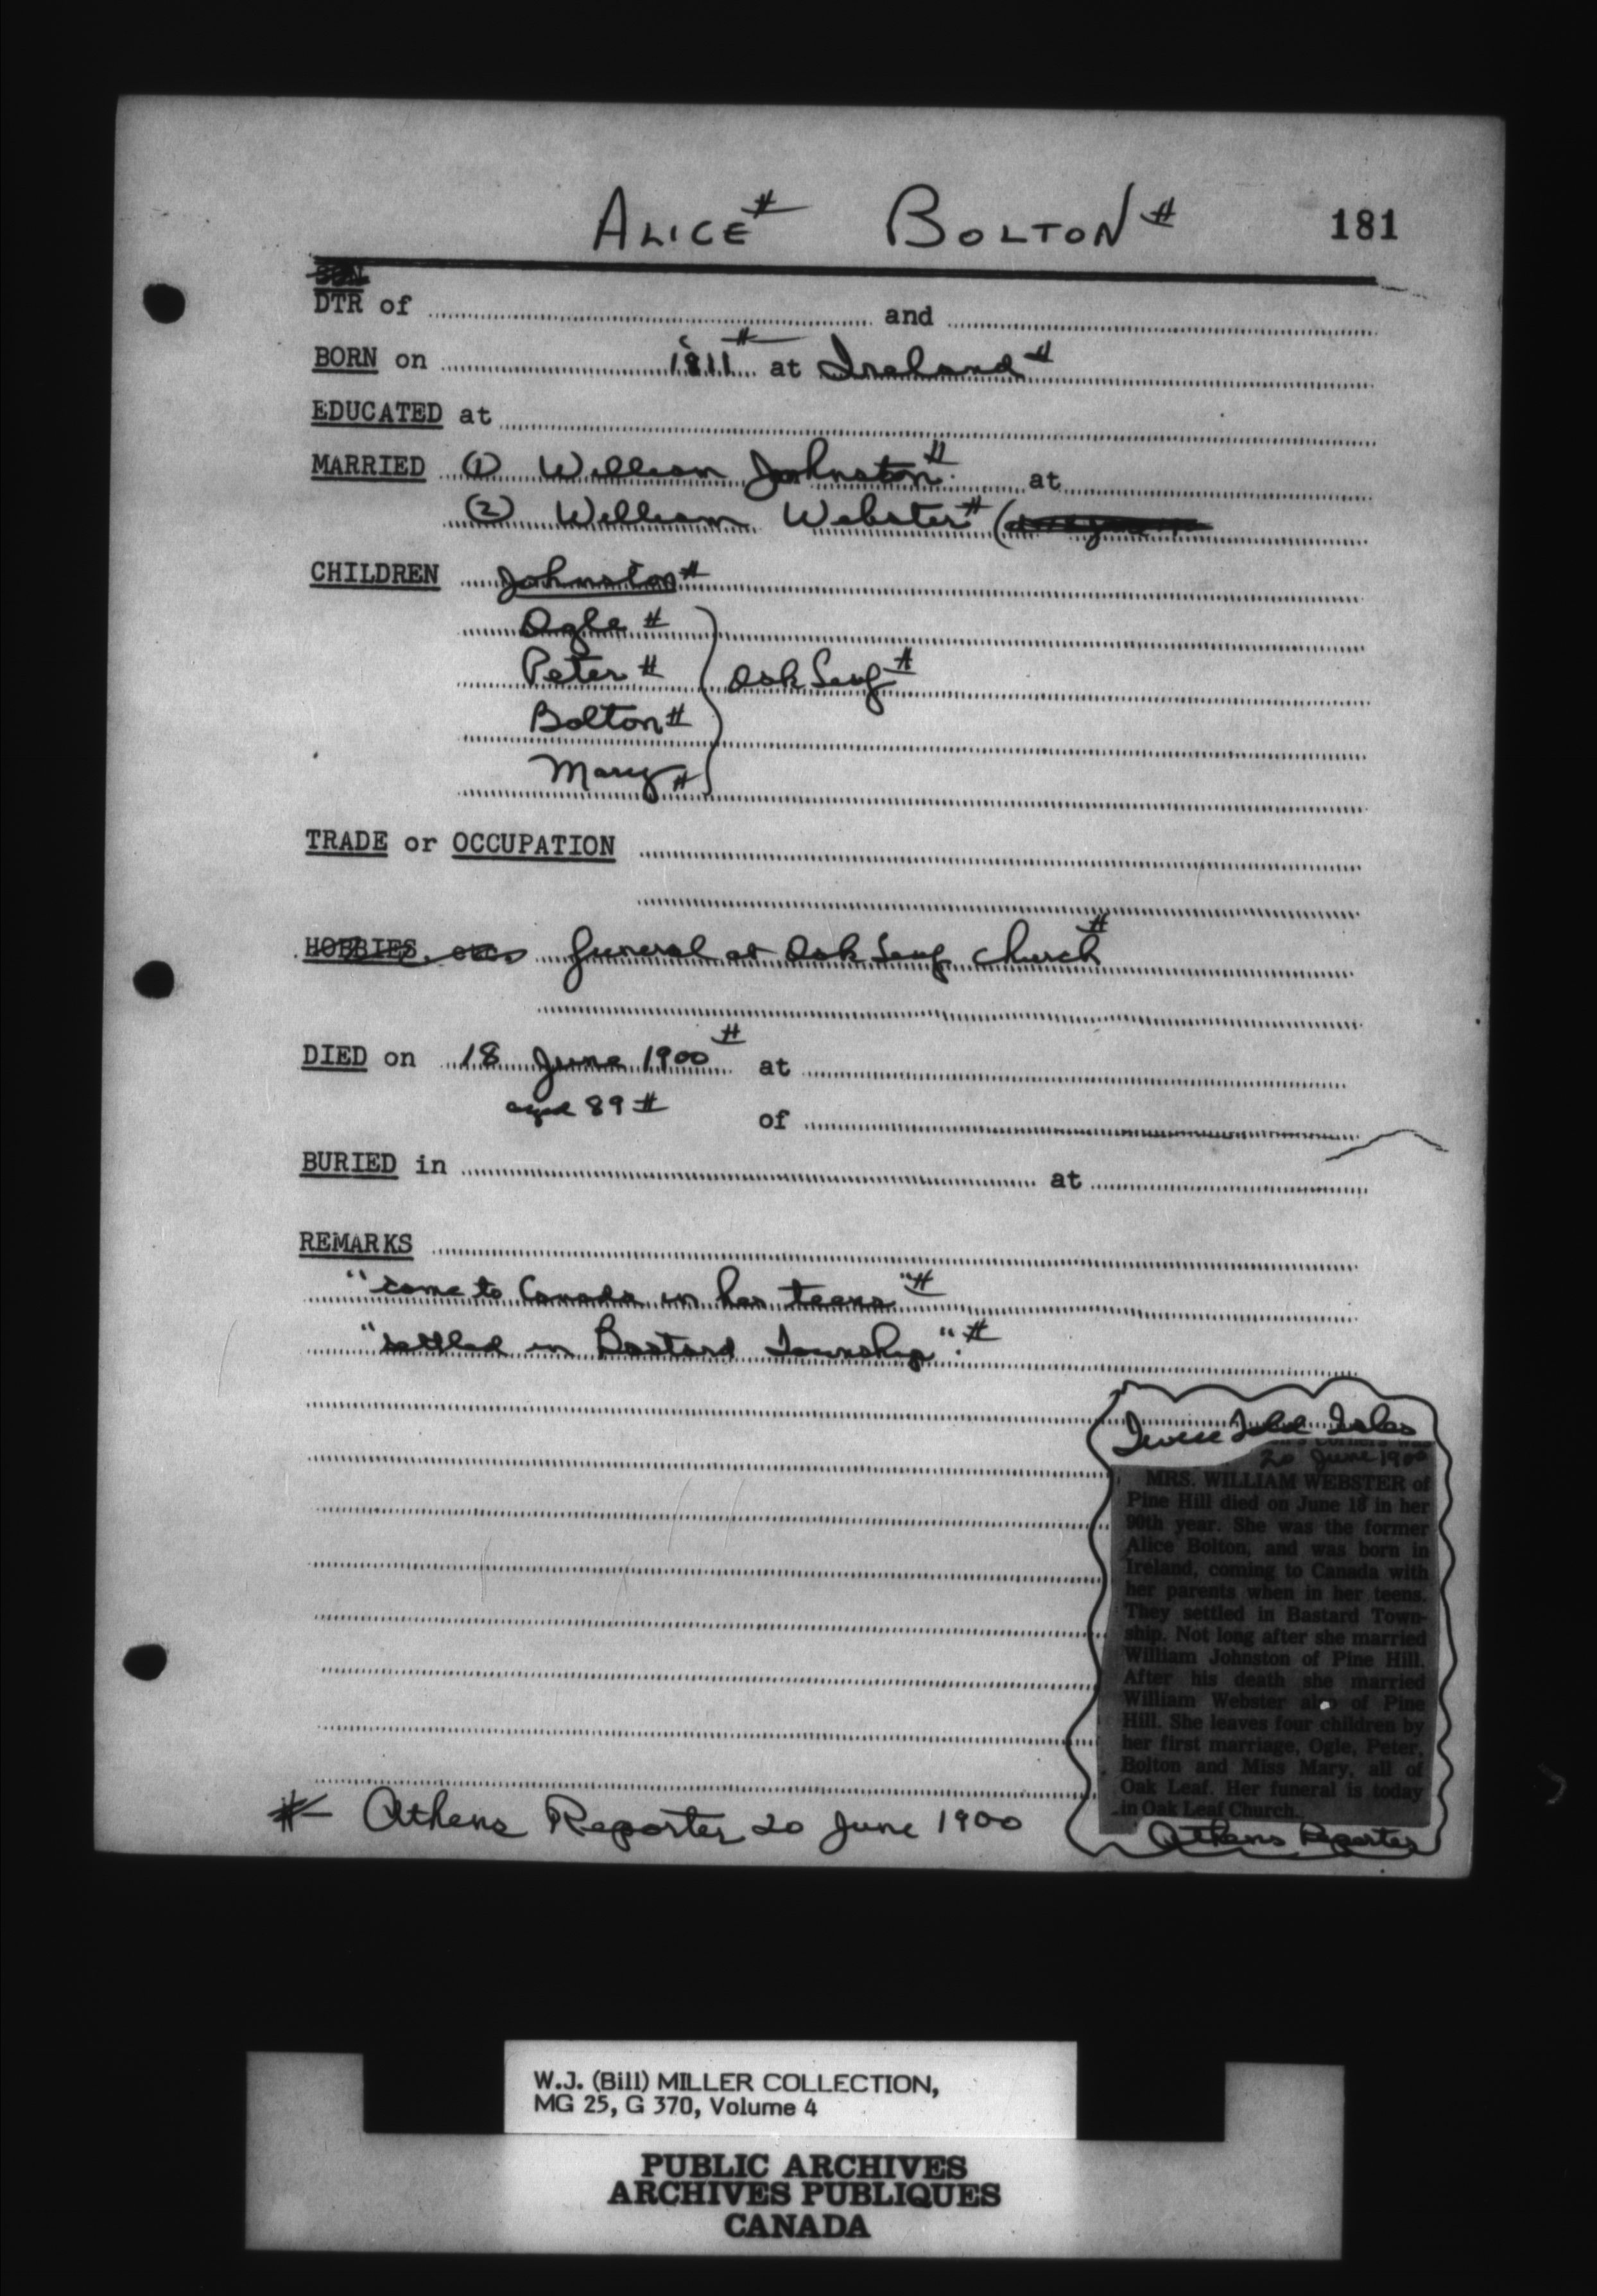 ALICE # BOLTON # 181
SON
DTR of and
BORN on c 1811 # at Ireland #
EDUCATED at
MARRIED (1) William Johnston # at
(2) William Webster # (
CHILDREN Johnston #
Ogle #
Peter # Oak Leaf #
Bolton #
Mary #
TRADE or OCCUPATION
HOBBIES, etc. funeral at Oak Leaf church #
DIED on 18 June 1900 # at
aged 89 # of
BURIED in at
REMARKS
"came to Canada in her teens" #
"settled in Bastard Township". #
Twice Told Tales
20 June 1900
MRS. WILLIAM WEBSTER of
Pine Hill died on June 18 in her
90th year. She was the former
Alice Bolton, and was born in
Ireland, coming to Canada with
her parents when in her teens.
They settled in Bastard Town-
ship. Not long after she married
William Johnston of Pine Hill.
After his death she married
William Webster also of Pine
Hill. She leaves four children by
her first marriage, Ogle, Peter,
Bolton and Miss Mary, all of
Oak Leaf. Her funeral is today
in Oak Leaf Church.
Athens Reporter
# Athens Reporter 20 June 1900
W.J. (Bill) MILLER COLLECTION,
MG 25, G 370, Volume 4
PUBLIC ARCHIVES
ARCHIVES PUBLIQUES
CANADA